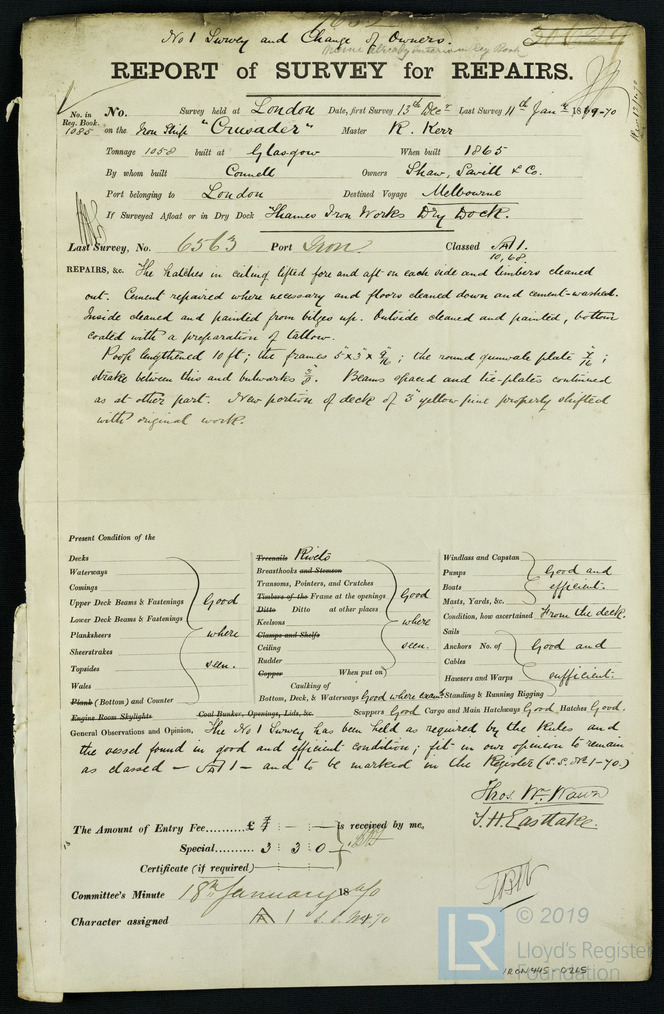 No 1 Survey and Change of Owners.
REPORT of SURVEY for REPAIRS.
No. in Reg. Book. 1085
No. Survey held at London Date, first Survey 13th Decr Last Survey 11th Jany 1869-70
on the Iron Ship "Crusader" Master R. Kerr
Tonnage 1058 built at Glasgow When built 1865
By whom built Connell Owners Shaw, Savill & Co.
Port belonging to London Destined Voyage Melbourne
If Surveyed Afloat or in Dry Dock Thames Iron Works Dry Dock.
Last Survey, No. 6563 Port Iron Classed A 1.
10,68.
REPAIRS, &c. The hatches in ceiling lifted fore and aft on each side and limbers cleaned
out. Cement repaired where necessary and floors cleaned down and cement-washed.
Inside cleaned and painted from bilges up. Outside cleaned and painted, bottom
coated with a preparation of tallow.
Poop lengthened 10 ft; the frames 5" x 3" x 9/16; the round gunwale plate 7/16;
strake between this and bulwarks. Beams spaced and tie-plates continued
as at other part. New portion of deck of 3" yellow pine properly shifted
with original work.
Present Condition of the
Decks
Waterways
Comings
Upper Deck Beams & Fastenings
Lower Deck Beams & Fastenings
Planksheers
Sheerstrakes
Topsides
Wales
Plank (Bottom) and Counter
Engine Room Skylights
Good
where
seen.
Treenails Rivets
Breasthooks and Stemson
Transoms, Pointers, and Crutches
Timbers of the Frame at the openings
Ditto Ditto at other places
Keelsons
Clamps and Shelfs
Ceiling
Rudder
Copper When put on
Caulking of
Bottom, Deck, & Waterways Good where examd
Coal Bunker, Openings, Lids, &c.
Good
where
seen.
Windlass and Capstan
Pumps
Boats
Masts, Yards, &c.
Good and
efficient.
Condition, how ascertained From the deck.
Sails
Anchors No. of
Cables
Hawsers and Warps
Standing & Running Rigging
Good and
sufficient.
Scuppers Good Cargo and Main Hatchways Good Hatches Good.
General Observations and Opinion, The No 1 Survey has been held as required by the Rules and
the vessel found in good and efficient condition; fit in our opinion to remain
as classed — A 1 — and to be marked in the Register (S.S. No 1-70.)
Thos. W. Wawn
T. H. Eastlake.
The Amount of Entry Fee........... £ is received by me,
Special........... 3 : 3 : 0
Certificate (if required)
Committee's Minute 18th January 1870
Character assigned A 1 S.S. No 1 70
LR
© 2019
Lloyd's Register
Foundation
IRON 445-0265